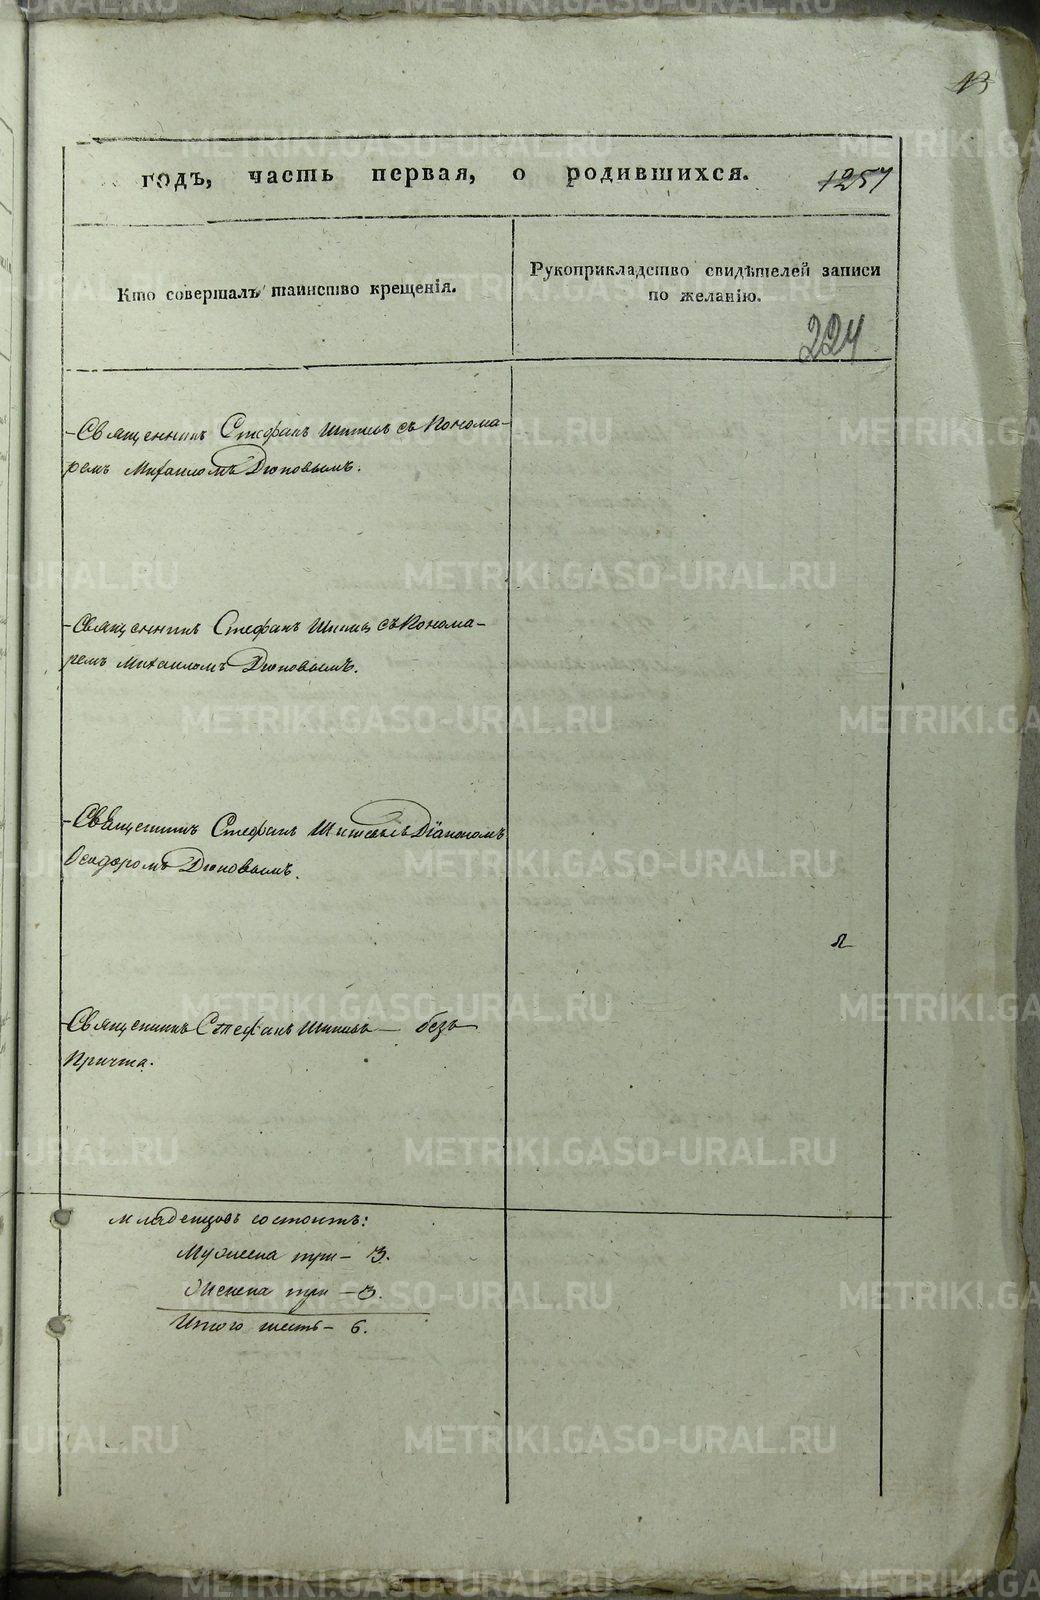 13
годъ, часть первая, о родившихся. 1257
Кто совершалъ таинство крещенія.
Рукоприкладство свидѣтелей записи
по желанію.
224
Священникъ Стефанъ съ Понома-
ремъ Михаиломъ Дюповымъ.
Священникъ Стефанъ съ Понома-
ремъ Михаиломъ Дюповымъ.
Священникъ Стефанъ Діакономъ
Ѳеодоромъ Дюповымъ.
Священникъ Стефанъ — безъ
Причта.
Младенцовъ состоитъ:
Мужеска три – 3.
Женска три – 3.
Итого шесть – 6.
METRIKI.GASO-URAL.RU